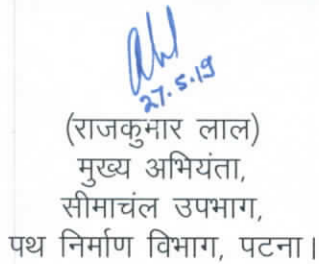 27.5.19
(राजकुमार लाल)
मुख्य अभियंता,
सीमाचंल उपभाग,
पथ निर्माण विभाग, पटना।